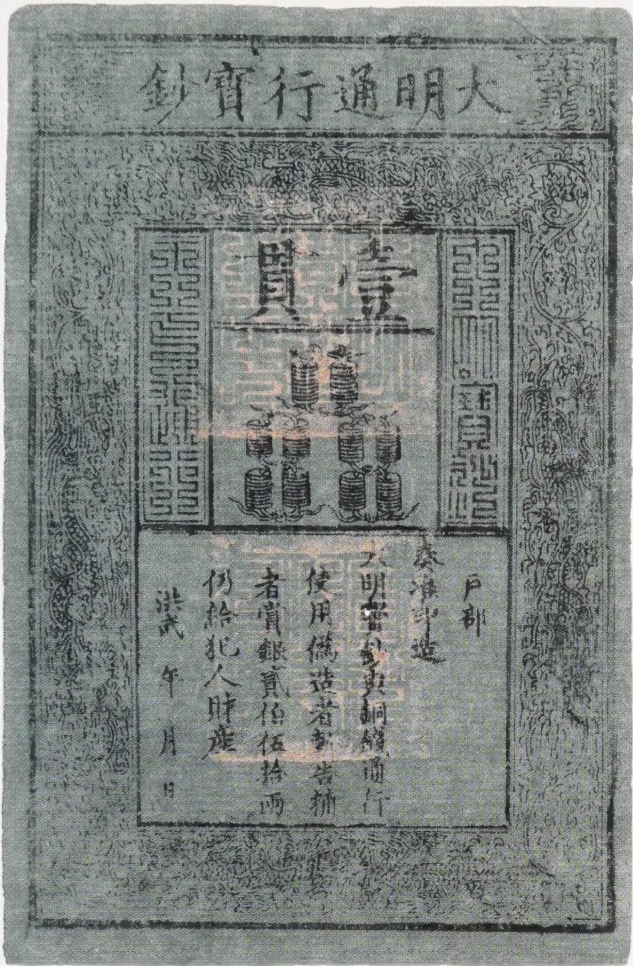 大明通行寶鈔
壹貫
大明寶鈔
天下通行
戶部
奏准印造
大明寶鈔與銅錢通行
使用僞造者斬告捕
者賞銀貳伯伍拾兩
仍給犯人財產
洪武 年 月 日